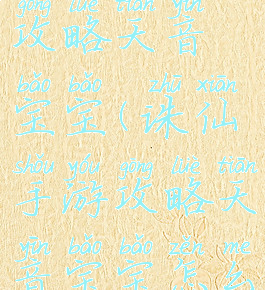 gōng lüè tiān yīn
攻略天音
bǎo bǎo zhū xiān
宝宝(诛仙
shǒu yóu gōng lüè tiān
手游攻略天
yīn bǎo bǎo zěn me
音宝宝怎么